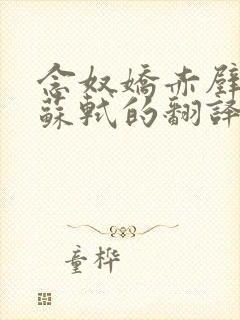 念奴嬌赤壁
蘇軾的翻譯
童桦